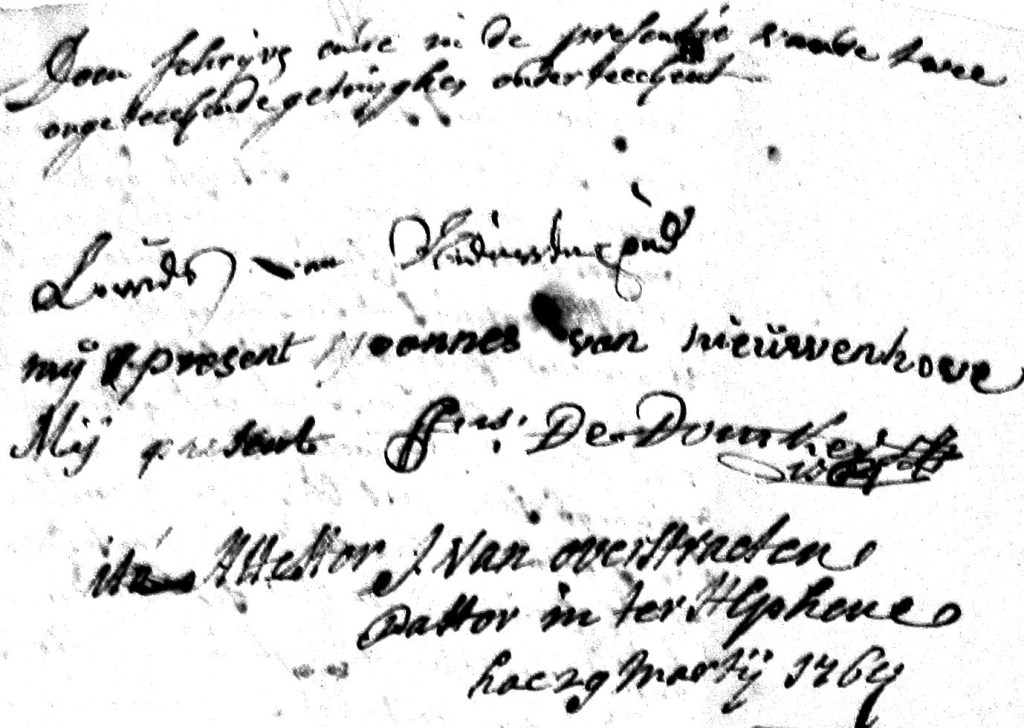 Doen schrijve ende in de presentie vande twee
ongeteeckende getuijghen onderteeckent
van
mij present Joannes van nieuwenhove
Mij present De Doncker
ita Attestor J. Van overstraeten
Pastor in ter Alphene
hac 29 Martij 1764